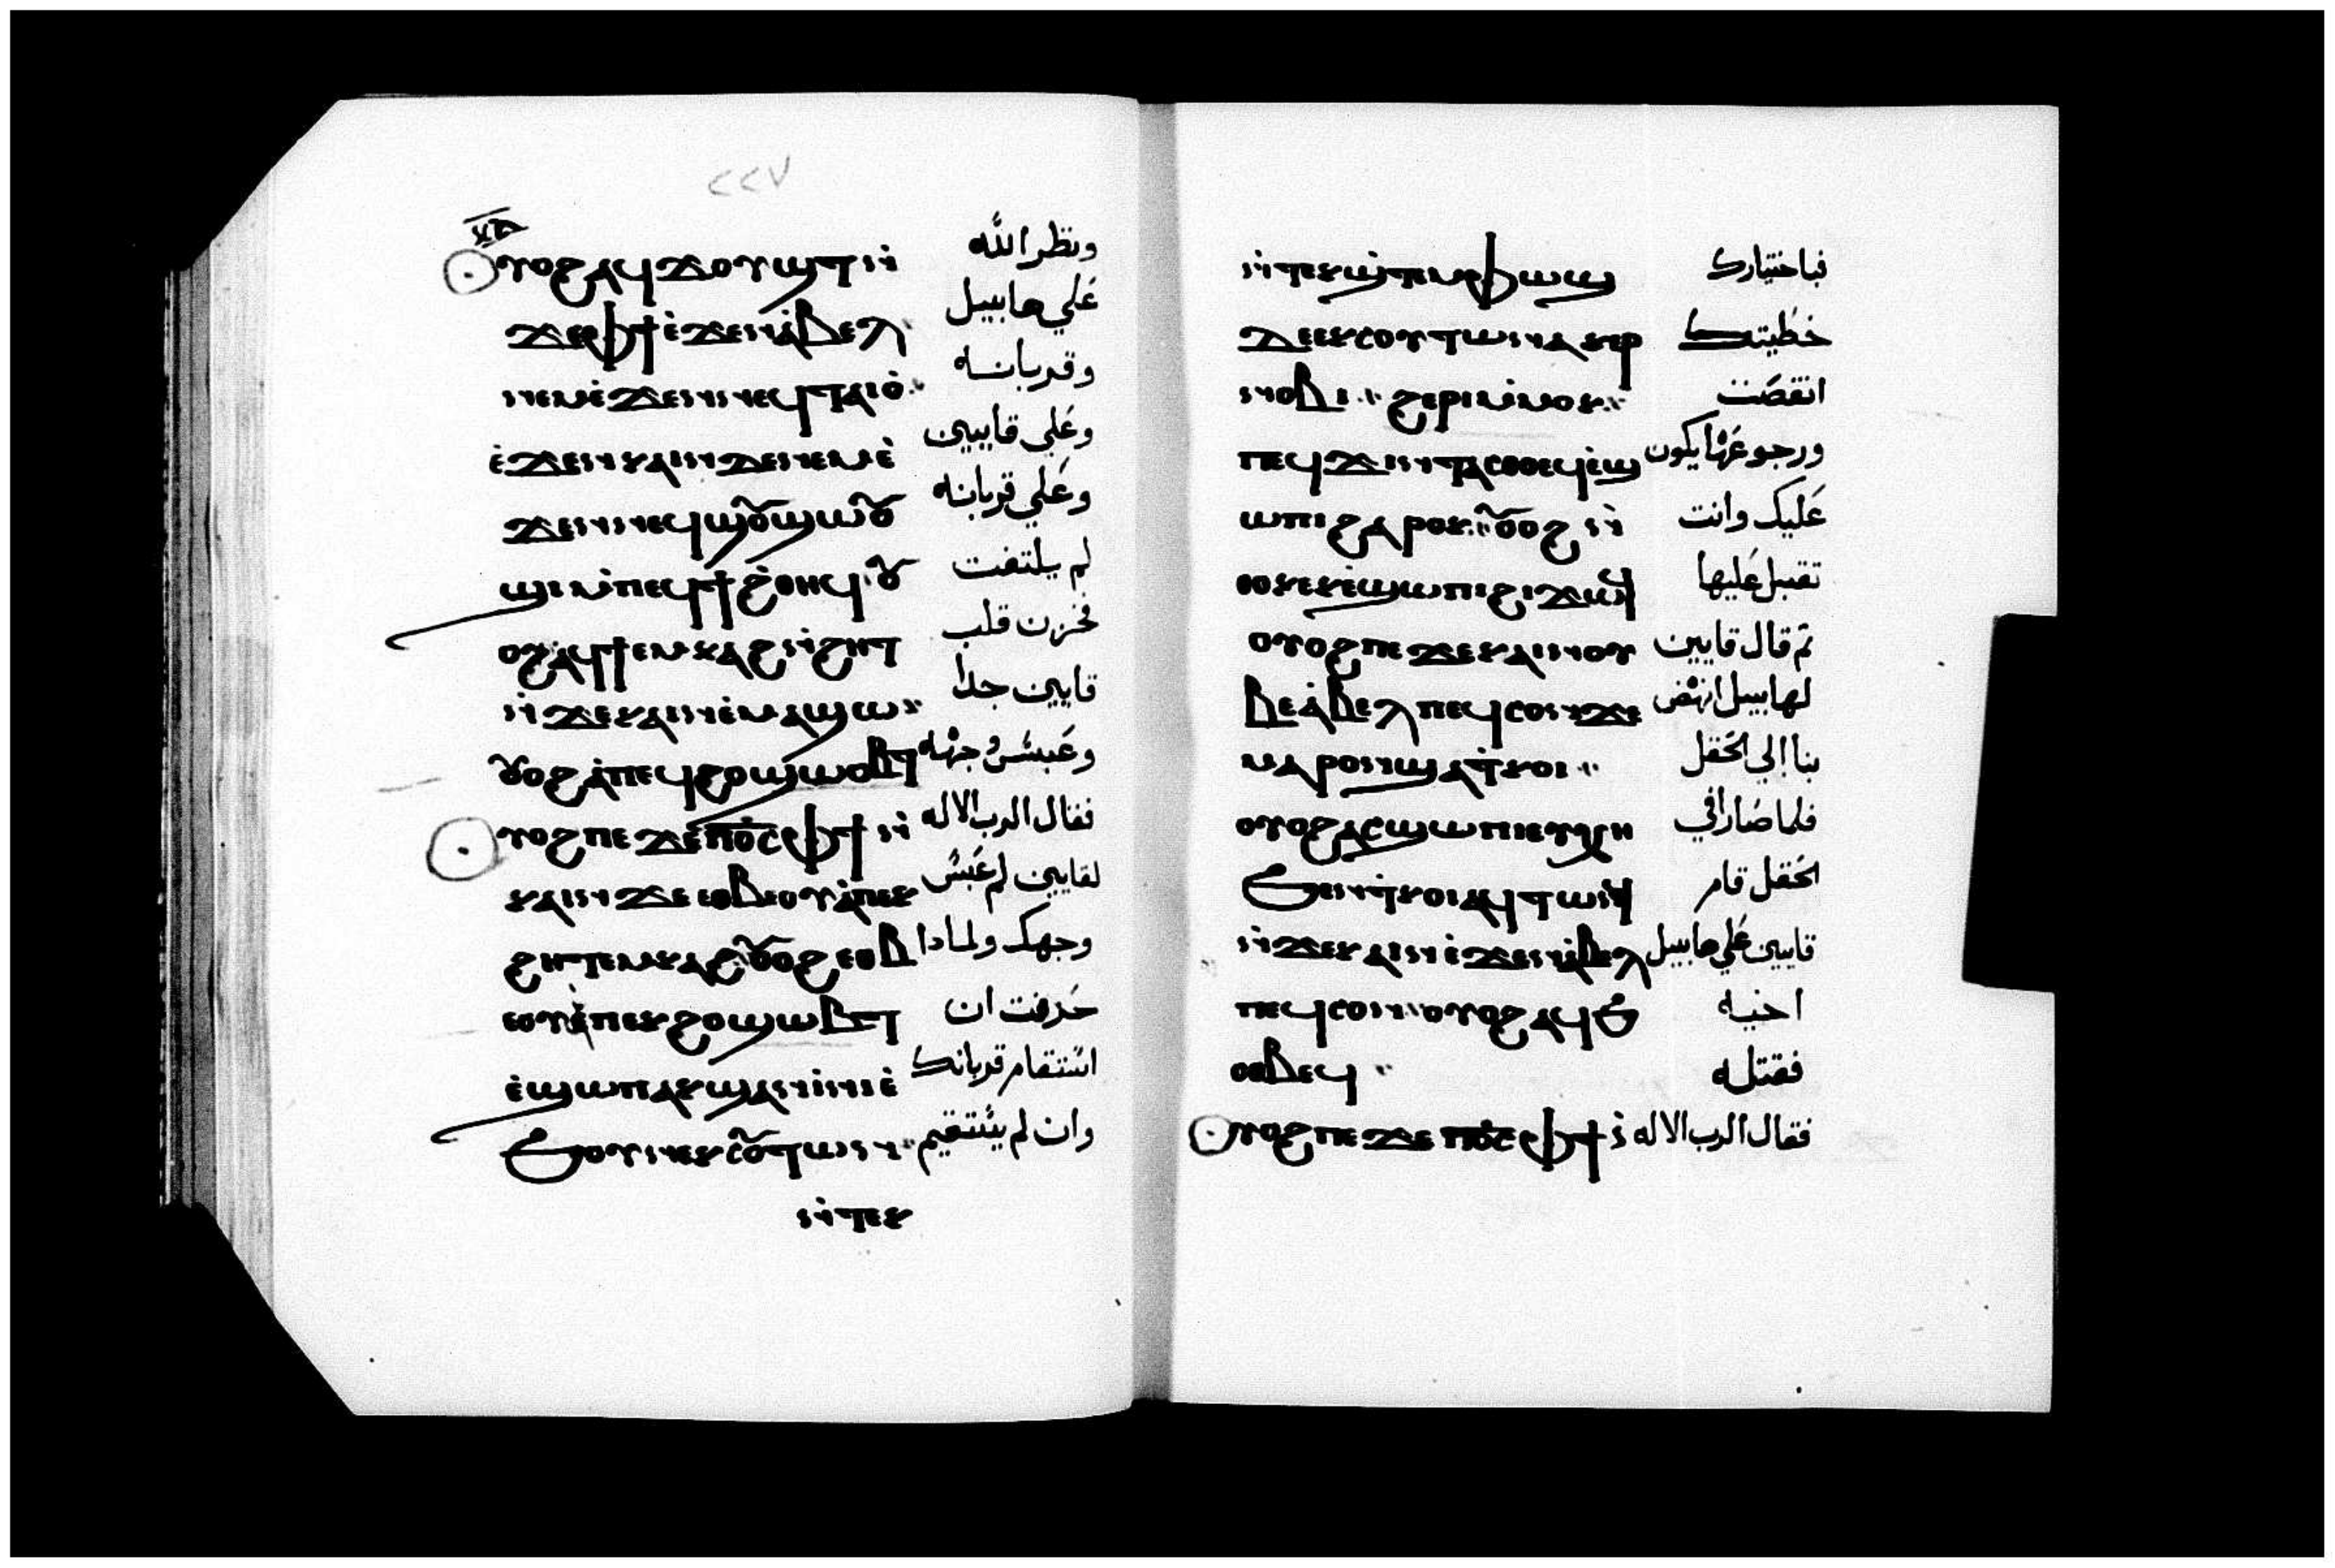 ٢٢٧
ⲟⲩⲟϩ ⲁϥϫⲟⲩϣⲧ ⲛ̀ ونظر الله
ϫⲉⲫϯ ⲉ̀ϫⲉⲛ ⲁ̀ⲃⲉⲗ علي هابيل
ⲛⲉⲙ ⲉ̀ϫⲉⲛ ⲛⲉϥⲧⲁⲓⲟ̀ وقربانه
ⲉ̀ϫⲉⲛ ⲕⲁⲓⲛ ⲇⲉ ⲛⲉⲙ ⲉ̀ وعلي قايين
ϫⲉⲛ ⲛⲉϥϣⲟⲩϣⲱⲟⲩ وعلي قربانه
ϣⲓ ⲙ̀ⲡⲉϥϯϩ̀ⲑⲏϥ ⲟⲩ لم يلتفت
ⲟϩ ⲁϥϯⲉⲙⲕⲁϩ ⲛ̀ϩⲏⲧ فحزن قلب
ⲛ̀ϫⲉ ⲕⲁⲓⲛ ⲉ̀ⲙⲁϣⲱ قايين جدا
ⲟⲩⲟϩ ⲁ̀ⲡⲉϥϩⲟ ϣⲱⲃⲧ وعبس وجهه
ⲟⲩⲟϩ ⲡⲉϫⲉ ⲡⲟ̅ⲥ̅ ⲫϯ ⲛ̀ فقال الرب الاله
ⲕⲁⲓⲛ ϫⲉ ⲉⲑⲃⲉⲟⲩ ⲁ̀ⲡⲉⲕ لقايين لم عبس
ϩⲏⲧ ⲉⲙⲕⲁϩ ⲟⲩⲟϩ ⲉⲑⲃ وجهك ولمادا
ⲉⲟⲩ ⲁ̀ⲡⲉⲕϩⲟ ϣⲱⲃⲧ حزفت ان
ⲉ̀ϣⲱⲡ ⲁⲕϣⲁⲛⲓ̀ⲛⲓ ⲉ̀ استقام قربانك
ϧⲟⲩⲛ ⲉⲕⲥⲟⲩⲧⲱⲛ وان لم يستقيم
ⲛ̀ⲧⲉⲕ
ⲛ̀ⲧⲉⲕϣ̀ⲧⲉⲙⲫⲱϣ فباختيارك
ⲇⲉ ⲉⲕⲥⲟⲩⲧⲱⲛ ⲁⲕⲉⲣ خطيتك
ⲛⲟⲃⲓ ϩⲉⲣⲓ ⲙ̀ⲙⲟⲕ انقصت
ⲡⲉϥϫⲓⲛⲧⲁⲥⲑⲟ ⲉϥⲉ̀ϣ ورجوعها يكون
ⲱⲡⲓ ϩⲁⲣⲟⲕ ⲟⲩⲟϩ ⲛ̀ عليك وانت
ⲑⲟⲕ ⲉⲕⲉ̀ϣⲱⲡⲓ ϩⲓϫⲱϥ تقبل عليها
ⲟⲩⲟϩ ⲡⲉϫⲉ ⲕⲁⲓⲛ ⲟⲩ ثم قال قايين
ⲃⲉ ⲁ̀ⲃⲉⲗ ⲡⲉϥⲥⲟⲛ ϫⲉ لهابيل انهض
ⲙⲁⲣⲟⲛ ϣⲁ ⲧ̀ⲕⲟⲓ بنا الي الحقل
ⲟⲩⲟϩ ⲁⲥϣⲱⲡⲓ ⲉⲩⲭⲏ فلما صارا في
ϧⲉⲛ ⲧ̀ⲕⲟⲓ ⲁϥⲧⲱⲛϥ الحقل قام
ⲛ̀ϫⲉ ⲕⲁⲓⲛ ⲉ̀ϫⲉⲛ ⲁ̀ⲃⲉⲗ قايين علي هابيل
ⲡⲉϥⲥⲟⲛ ⲟⲩⲟϩ ⲁϥϧ اخيه
ⲟⲑⲃⲉϥ فقتله
ⲟⲩⲟϩ ⲡⲉϫⲉ ⲡⲟ̅ⲥ̅ ⲫϯ ⲛ̀ فقال الرب الاله